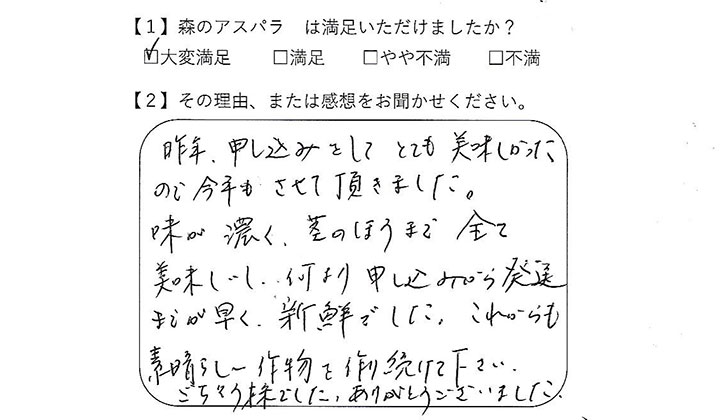 【1】森のアスパラ　は満足いただけましたか？
☑大変満足　□満足　□やや不満　□不満
【2】その理由、または感想をお聞かせください。
昨年、申し込みをしてとても美味しかった
ので今年もさせて頂きました。
味が濃く、茎のほうまで全て
美味しいし、何より申し込みから発送
までが早く、新鮮でした。これからも
素晴らしい作物を作り続けて下さい。
ごちそう様でした。ありがとうございました。